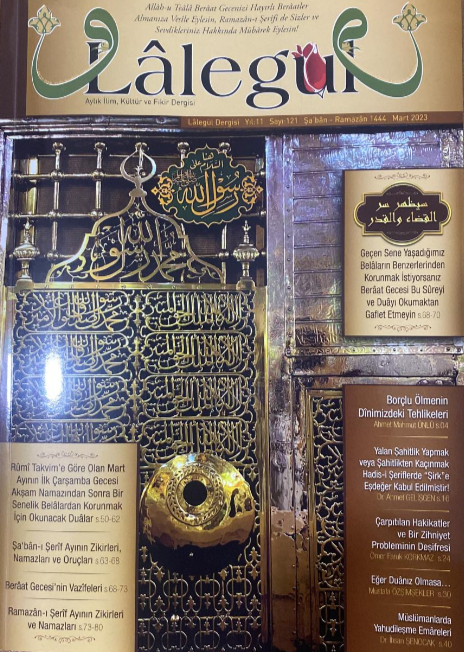 Allâh-u Teâlâ Berâat Gecenizi Hayırlı Berâatler
Almanıza Vesîle Eylesin, Ramazân-ı Şerîfi de Sizler ve
Sevdikleriniz Hakkında Mübârek Eylesin!
Lâlegül
Aylık İlim, Kültür ve Fikir Dergisi
Lâlegül Dergisi Yıl:11 Sayı:121 Şa'bân - Ramazân 1444 Mart 2023
رسول الله
سيظهر سر
القضاء والقدر
Geçen Sene Yaşadığımız
Belâların Benzerlerinden
Korunmak İstiyorsanız
Berâat Gecesi Bu Sûreyi
ve Duâyı Okumaktan
Gaflet Etmeyin s.68-70
Borçlu Ölmenin
Dînimizdeki Tehlikeleri
Ahmet Mahmut ÜNLÜ s.04
Yalan Şahitlik Yapmak
veya Şahitlikten Kaçınmak
Hadis-i Şeriflerde "Şirk"e
Eşdeğer Kabul Edilmiştir!
Dr. Ahmet GELİŞGEN s.16
Çarpıtılan Hakikatler
ve Bir Zihniyet
Probleminin Deşifresi
Ömer Faruk KORKMAZ s.24
Eğer Duânız Olmasa...
Mustafa ÖZŞİMŞEKLER s.30
Müslümanlarda
Yahudileşme Emâreleri
Dr. İhsan ŞENOCAK s.40
Rûmî Takvim'e Göre Olan Mart
Ayının İlk Çarşamba Gecesi
Akşam Namazından Sonra Bir
Senelik Belâlardan Korunmak
İçin Okunacak Duâlar s.50-62
Şa'bân-ı Şerîf Ayının Zikirleri,
Namazları ve Oruçları s.63-68
Berâat Gecesi'nin Vazîfeleri s.68-73
Ramazân-ı Şerîf Ayının Zikirleri
ve Namazları s.73-80